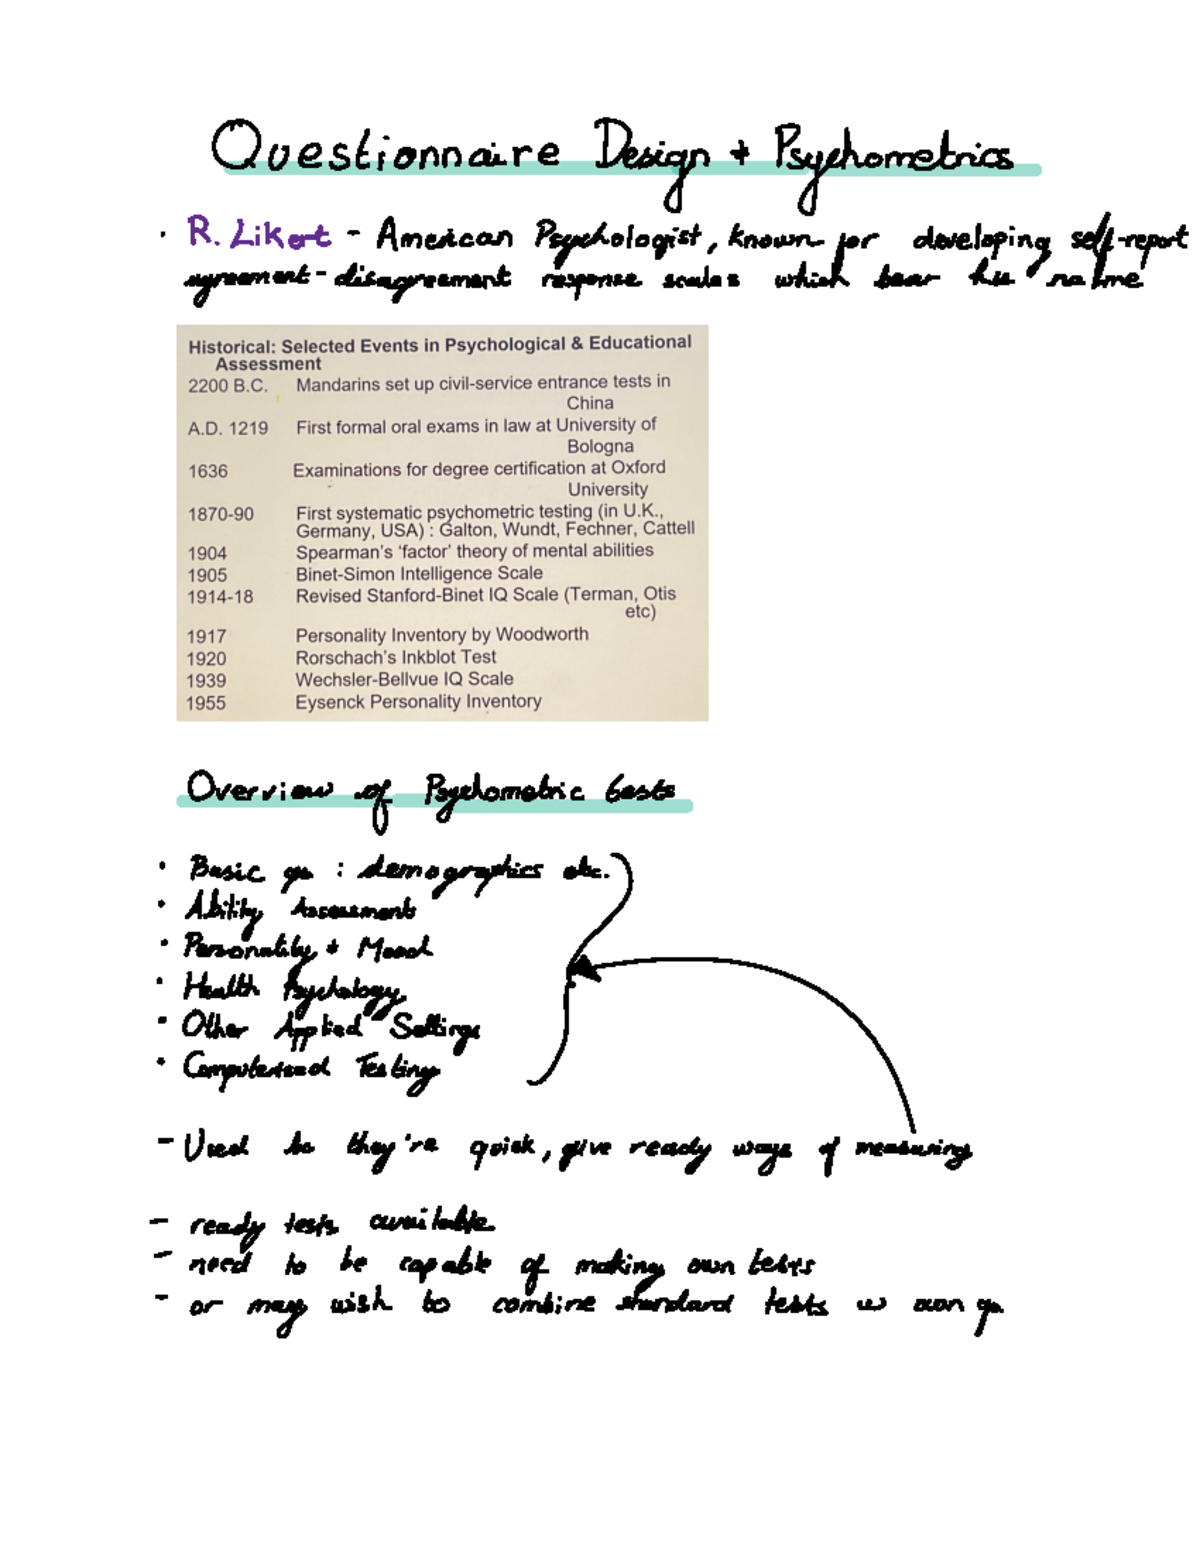 Questionnaire Design + Psychometrics
· R. Likert - American Psychologist, known for developing self-report
agreement-disagreement response scales which bear his name
Historical: Selected Events in Psychological & Educational
Assessment
2200 B.C. Mandarins set up civil-service entrance tests in
China
A.D. 1219 First formal oral exams in law at University of
Bologna
1636 Examinations for degree certification at Oxford
University
1870-90 First systematic psychometric testing (in U.K.,
Germany, USA) : Galton, Wundt, Fechner, Cattell
1904 Spearman's 'factor' theory of mental abilities
1905 Binet-Simon Intelligence Scale
1914-18 Revised Stanford-Binet IQ Scale (Terman, Otis
etc)
1917 Personality Inventory by Woodworth
1920 Rorschach's Inkblot Test
1939 Wechsler-Bellvue IQ Scale
1955 Eysenck Personality Inventory
Overview of Psychometric tests
· Basic qs : demographics etc.
· Ability Assessment
· Personality + Mood
· Health Psychology
· Other Applied Settings
· Computerised Testing
- Used bc they're quick, give ready ways of measuring
- ready tests available
- need to be capable of making own tests
- or may wish to combine standard tests w own qs